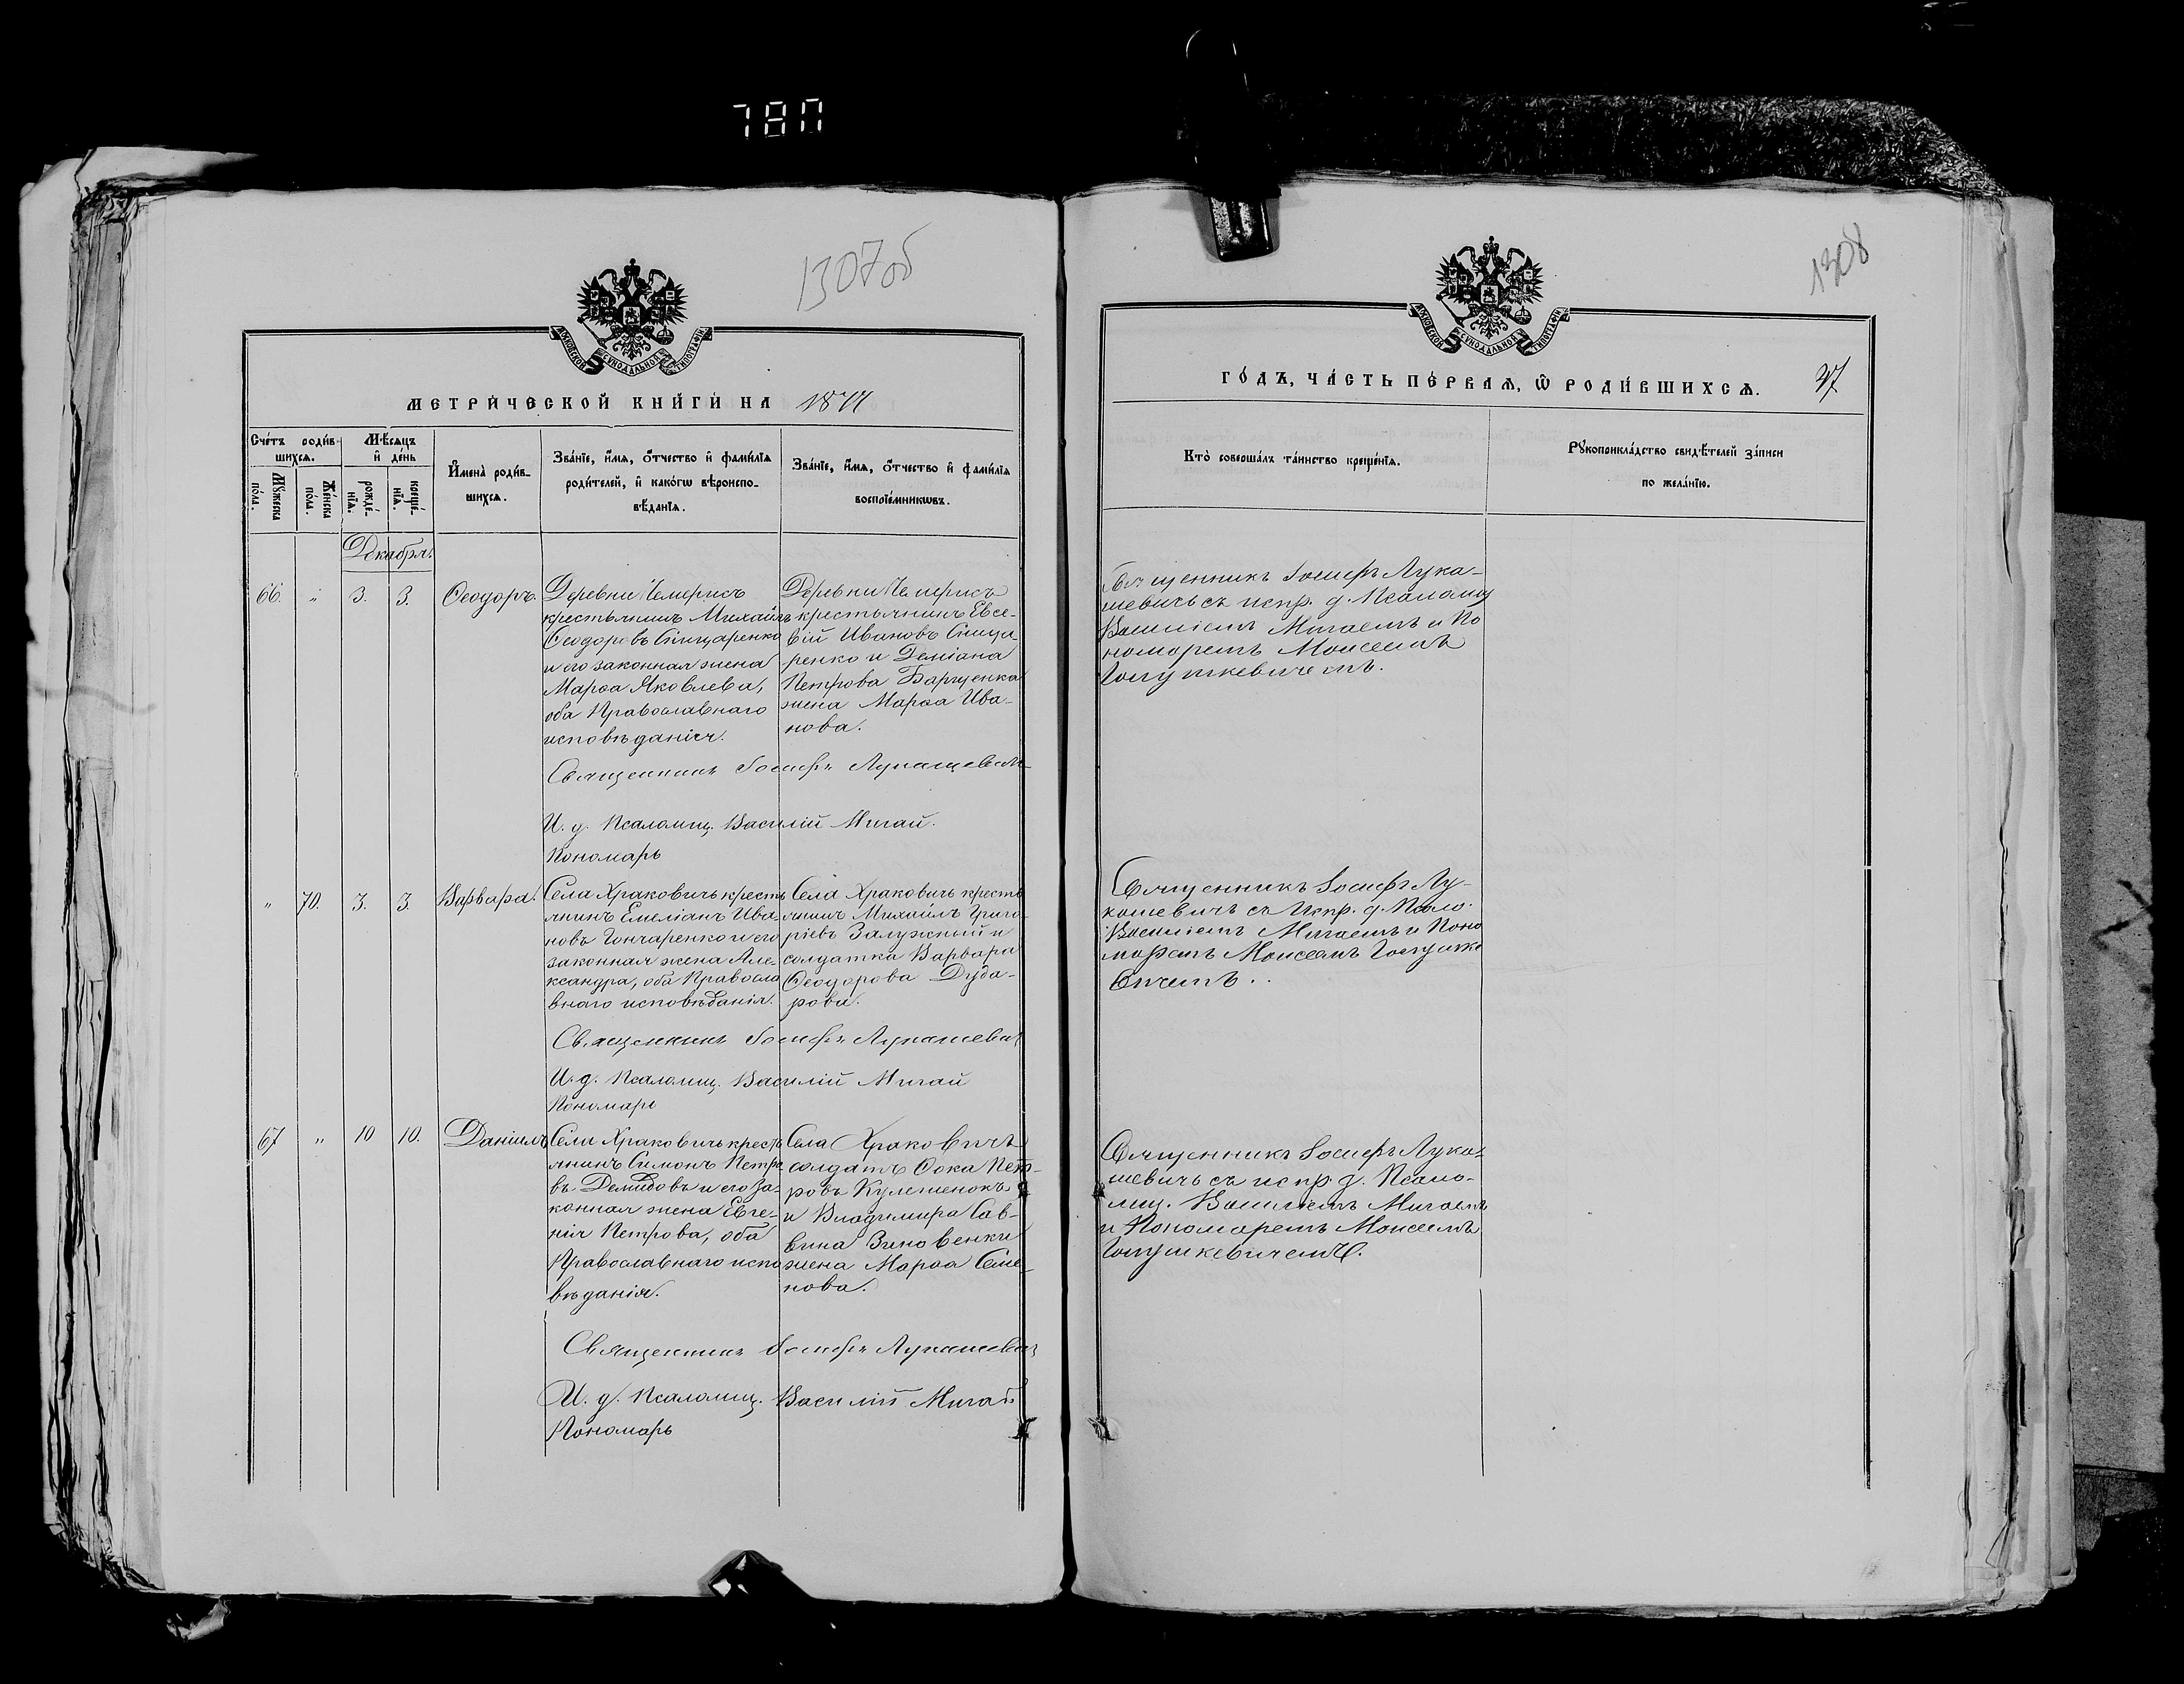 780
1307об
МОСКОВСКОЙ СѴНОДАЛЬНОЙ ТИПОГРАФІИ
МЕТРИ́ЧЕСКОЙ КНИ́ГИ НА 1877
Сче́тъ роди́в-
шихсѧ.
Мꙋ́жеска
по́ла.
Же́нска
по́ла.
Мѣ́сяцъ
и҆ де́нь
рожде́-
нїѧ.
креще́-
нїѧ.
И҆мена̀ роди́в-
шихсѧ.
Зва́нїе, и҆́мѧ, ѻ҆́тчество и҆ фами́лїѧ
роди́телей, и҆ како́гѡ вѣроиспо-
вѣ́данїѧ.
Зва́нїе, и҆́мѧ, ѻ҆́тчество и҆ фами́лїѧ
воспрїе́мникѡвъ.
Декабря.
66. " 3. 3. Ѳеодоръ.
Деревни Чемерисъ
крестьянинъ Михаилъ
Ѳеодоровъ Гинцаренко
и его законная жена
Марѳа Яковлева,
оба Православнаго
исповѣданія.
Деревни Чемерисъ
крестьянинъ Евсе-
вій Ивановъ
ренко и Деміана
Петрова
жена Марѳа Ива-
нова.
Священникъ Іосифъ Лукашевичъ
И. д. Псаломщ. Василій Мигай.
Пономарь
" 70. 3. 3. Варвара.
Села Храковичъ кресть
янинъ Емеліанъ Ива-
новъ Гончаренко и его
законная жена Але-
ксандра, оба Правосла
внаго исповѣданія.
Села Храковичъ кресть
янинъ Михаилъ Григо-
ріевъ Залужный и
солдатка Варвара
Ѳеодорова Дуда-
рова.
Священникъ Іосифъ Лукашевич
И. д. Псаломщ. Василій Мигай
Пономарь
67 " 10 10. Даніилъ
Села Храковичъ кресть
янинъ Симонъ Петро
въ Демидовъ и его за-
конная жена Евге-
нія Петрова, оба
Православнаго испо
вѣданія.
Села Храковичъ
солдатъ Ѳока Пет-
ровъ Кулешенокъ
и Владимира Сав-
вина Зиновенки
жена Марѳа Семе-
нова.
Священникъ Іосифъ Лукашевич
И. д. Псаломщ. Василій Мигай
Пономарь
1308
МОСКОВСКОЙ СѴНОДАЛЬНОЙ ТИПОГРАФІИ
ГО́ДЪ, ЧА́СТЬ ПЕ́РВАѦ, Ѡ҆ РОДИ́ВШИХСѦ. 37
Кто̀ соверша́лъ та́инство креще́нїѧ.
Рꙋкоприкла́дство свидѣ́телей за́писи
по жела́нїю.
Священникъ Іосифъ Лука-
шевичъ съ испр. д. Псаломщ
Василіемъ Мигаемъ и По
номоремъ Моисеемъ
Голушкевичемъ.
Священникъ Іосифъ Лу-
кашевичъ съ Испр. д. Псало.
Василіемъ Мигаемъ и Поно
маремъ Моисеемъ Голушке
вичемъ.
Священникъ Іосифъ Лука-
шевичъ съ испр. д. Псало-
мщ. Василіемъ Мигаемъ
и Пономаремъ Моисеемъ
Голушкевичемъ.